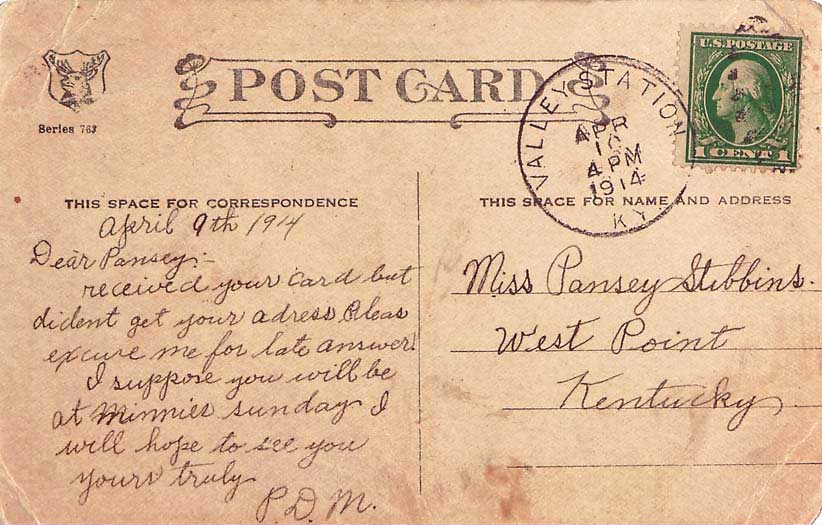 POST CARD
Series 763
U.S. POSTAGE
1 CENT 1
VALLEY STATION
APR
10
4 PM
1914
KY.
THIS SPACE FOR CORRESPONDENCE
April 9th 1914
Dear Pansey:-
received your card but
dident get your adress Pleas
excuse me for late answer.
I suppose you will be
at Minnies sunday I
will hope to see you
yours truly
P. D. M.
THIS SPACE FOR NAME AND ADDRESS
Miss Pansey Stibbins.
West Point
Kentucky